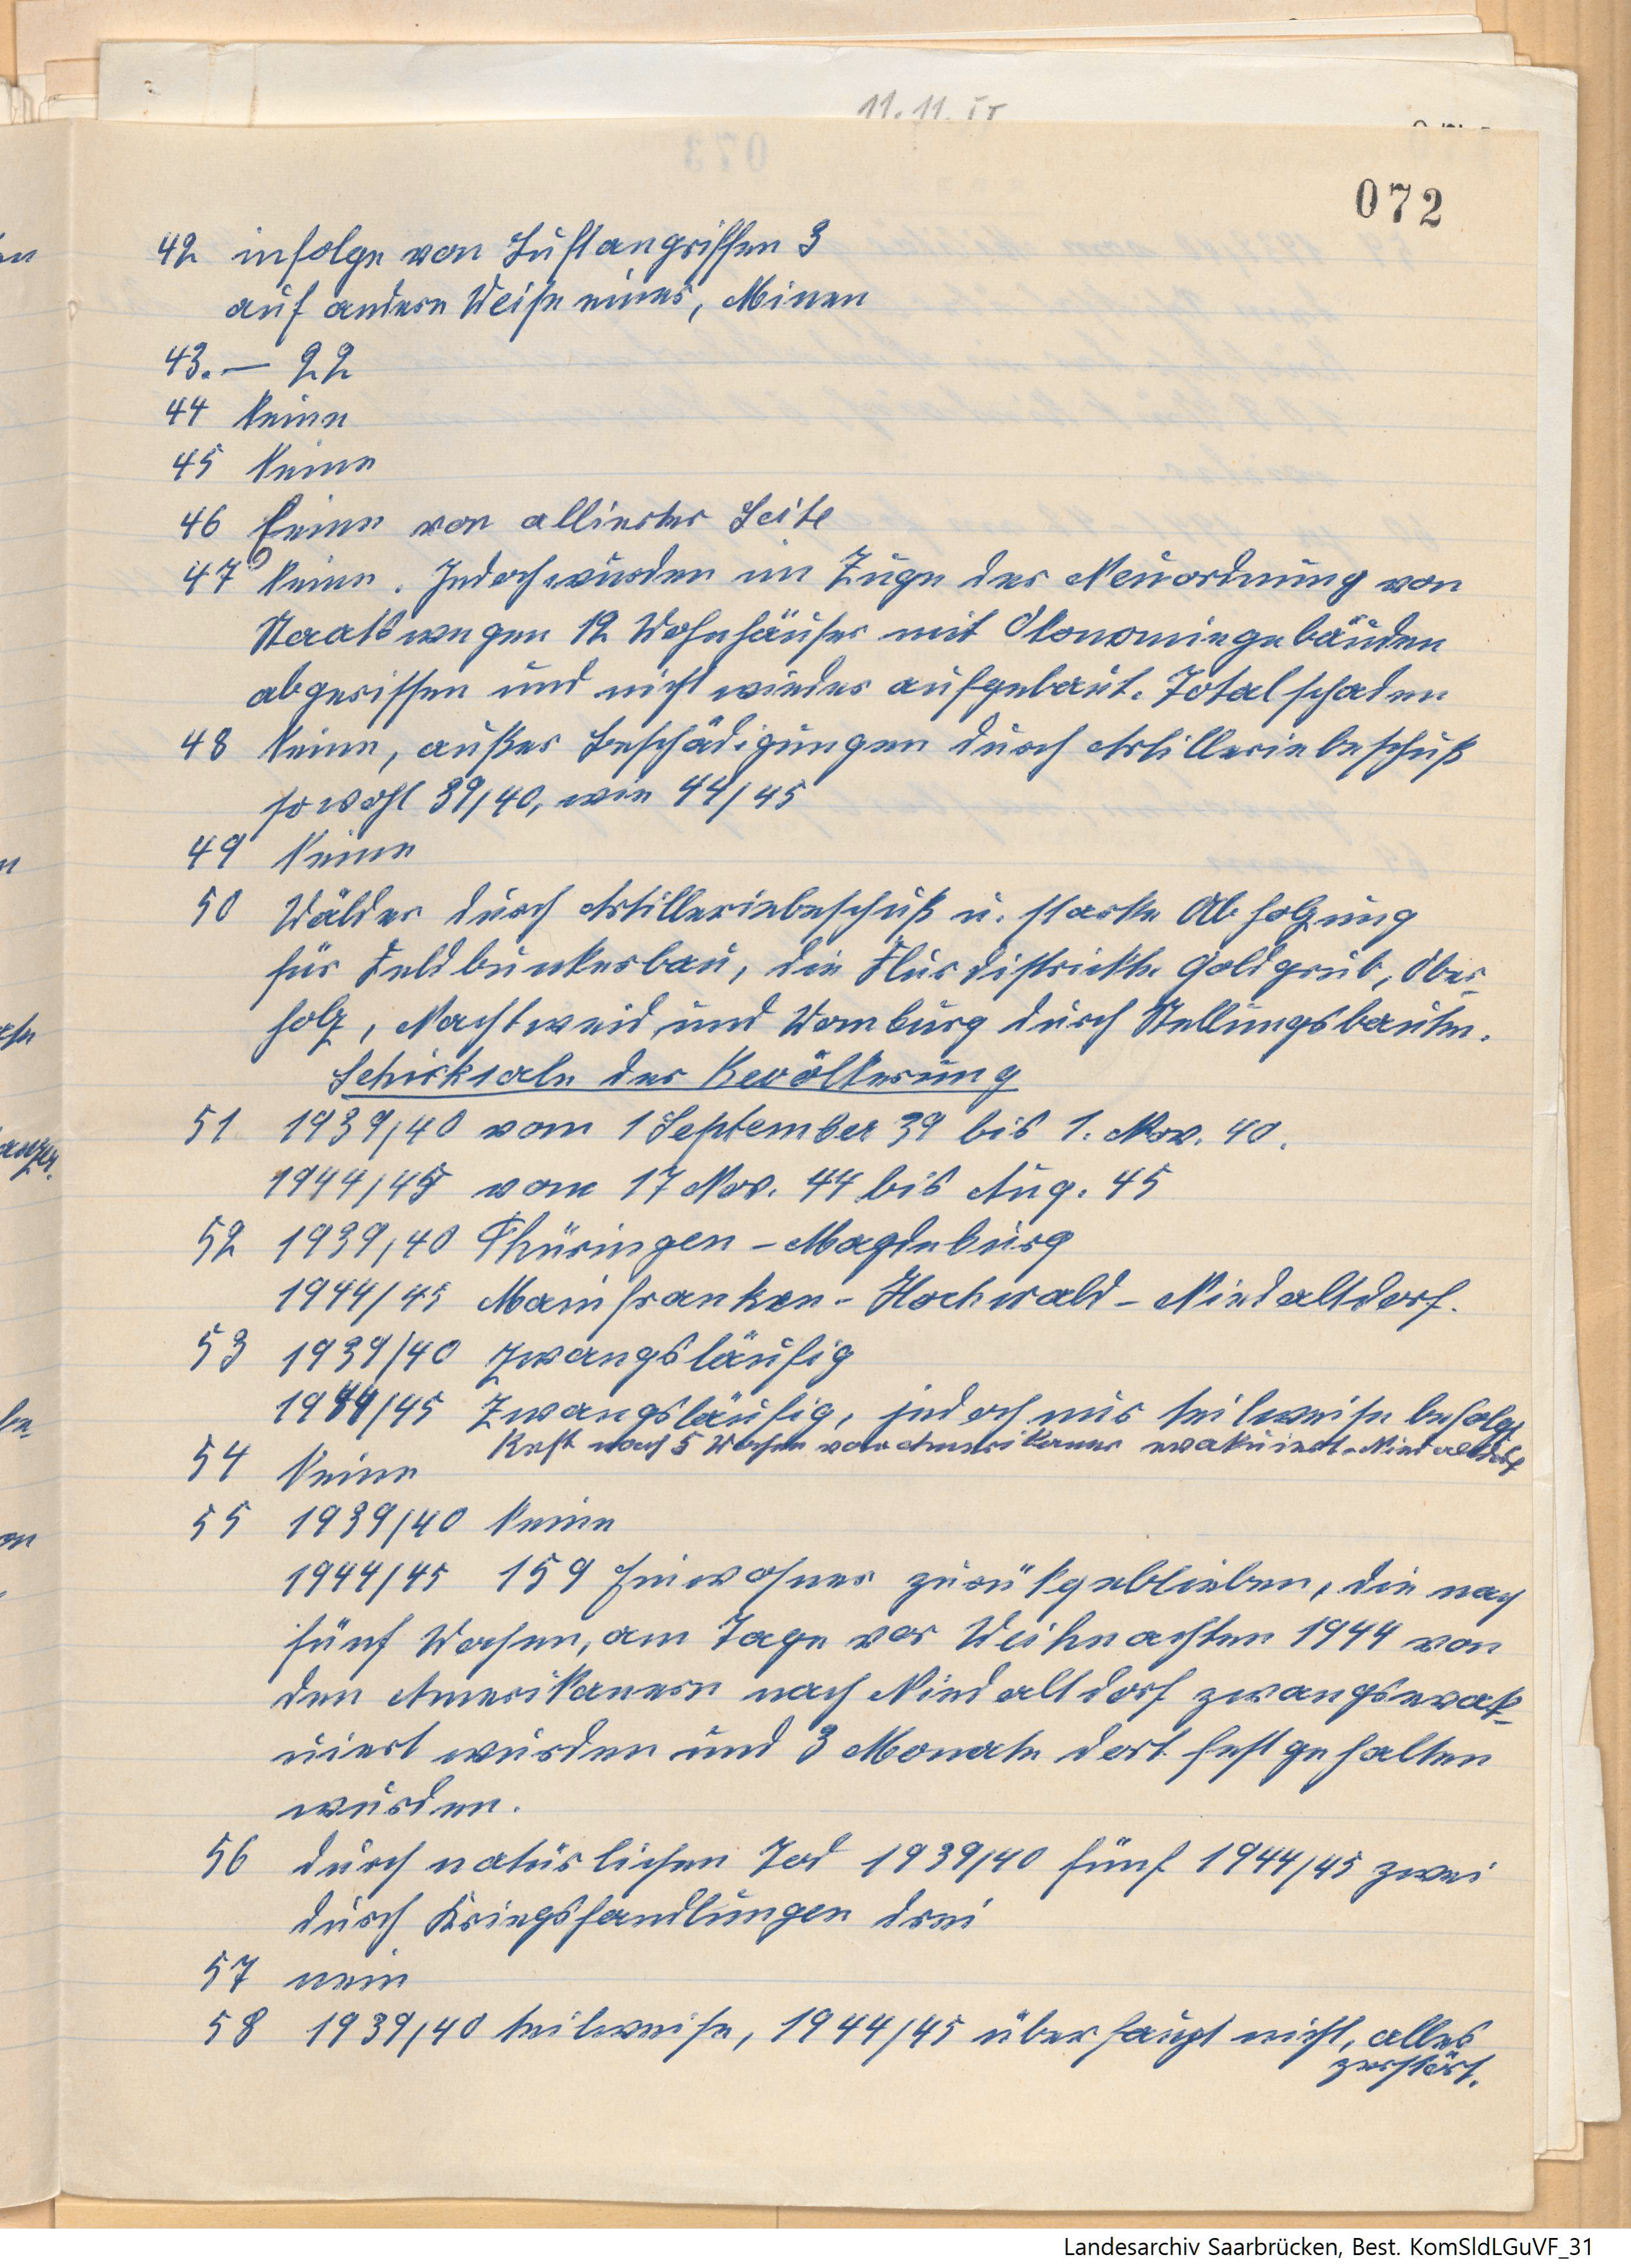 11.11.
072
42 infolge von Luftangriffen 3
auf andere Weise eines, Minen
43. — 22
44 Keine
45 Keine
46 Keine von alliierter Seite
47 Keine. Jedoch wurden im Zuge der Neuordnung von
Staatswegen 12 Wohnhäuser mit Ökonomiegebäuden
abgerissen und nicht wieder aufgebaut. Totalschaden
48 Keine, außer Beschädigungen durch Artilleriebeschuß
sowohl 39/40, wie 44/45
49 Keine
50 Wälder durch Artilleriebeschuß u. starke Abholzung
für Feldbunkerbau, die Flurdistrikte Goldgrub, Ober-
holz, Nachtweid und Womburg durch Stellungsbauten.
Schicksale der Bevölkerung
51 1939/40 vom 1 September 39 bis 1. Nov. 40.
1944/45 vom 17 Nov. 44 bis Aug. 45
52 1939/40 Thüringen - Magdeburg
1944/45 Mainfranken - Hochwald - Niedaltdorf.
53 1939/40 Zwangsläufig
1944/45 Zwangsläufig, jedoch nur teilweise befolgt
Rest nach 5 Wochen von Amerikaner evakuiert. Niedaltdorf
54 Keine
55 1939/40 Keine
1944/45 159 Einwohner zurükgeblieben, die nach
fünf Wochen, am Tage vor Weihnachten 1944 von
den Amerikanern nach Niedaltdorf zwangsevak-
uiert wurden und 3 Monate dort festgehalten
wurden.
56 durch natürlichen Tod 1939/40 fünf 1944/45 zwei
durch Kriegshandlungen drei
57 nein
58 1939/40 teilweise, 1944/45 überhaupt nicht, alles
zerstört.
Landesarchiv Saarbrücken, Best. KomSldLGuVF_31